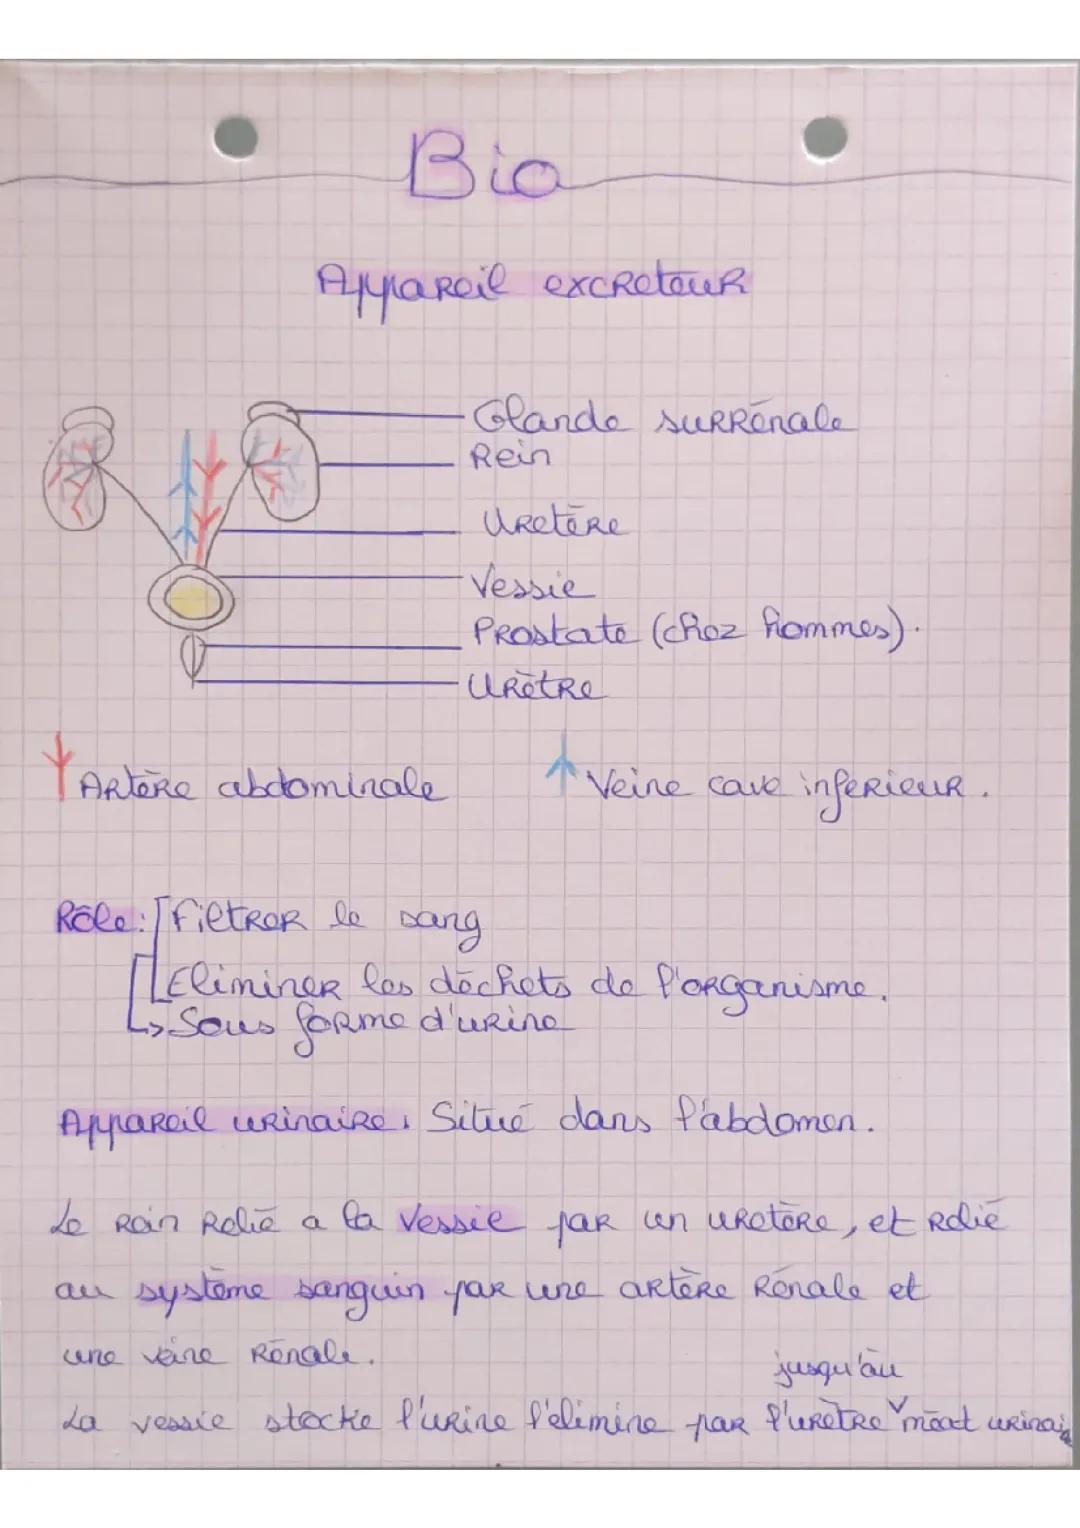 Bio
Appareil excreteur
Glande surrénale
Rein
Uretère
Vessie
Prostate (chez hommes).
Urètre
Artère abdominale
Veine cave inferieur.
Rôle: Filtrer le sang
Eliminer les déchets de l'organisme.
Sous forme d'urine
Appareil urinaire: Situé dans l'abdomen.
Le rein relié a la vessie par un uretère, et relié
au système sanguin par une artère rénale et
une veine rénale.
jusqu'au
La vessie stocke l'urine l'elimine par l'urètre méat urinaire